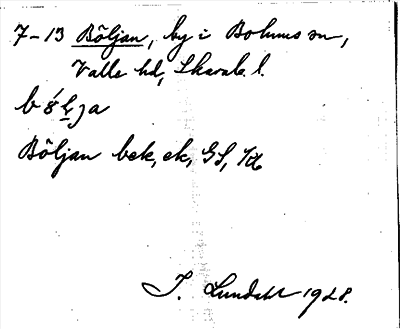 7-13 Böljan, by i Bolums sn,
Valle hd, Skarab. l.
Böljan bek, ek, GS,
I. Lundahl 1928.